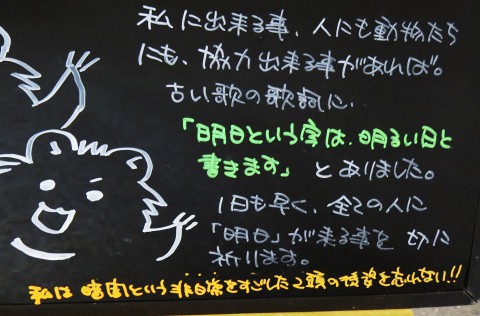 私に出来る事、人にも動物たち
にも、協力出来る事があれば。
古い歌の歌詞に、
「明日という字は、明るい日と
書きます」とありました。
1日も早く、全ての人に
「明日」が来る事を切に
祈ります。
私は 暗闇という非日常をすごした 頭の 忘れない!!